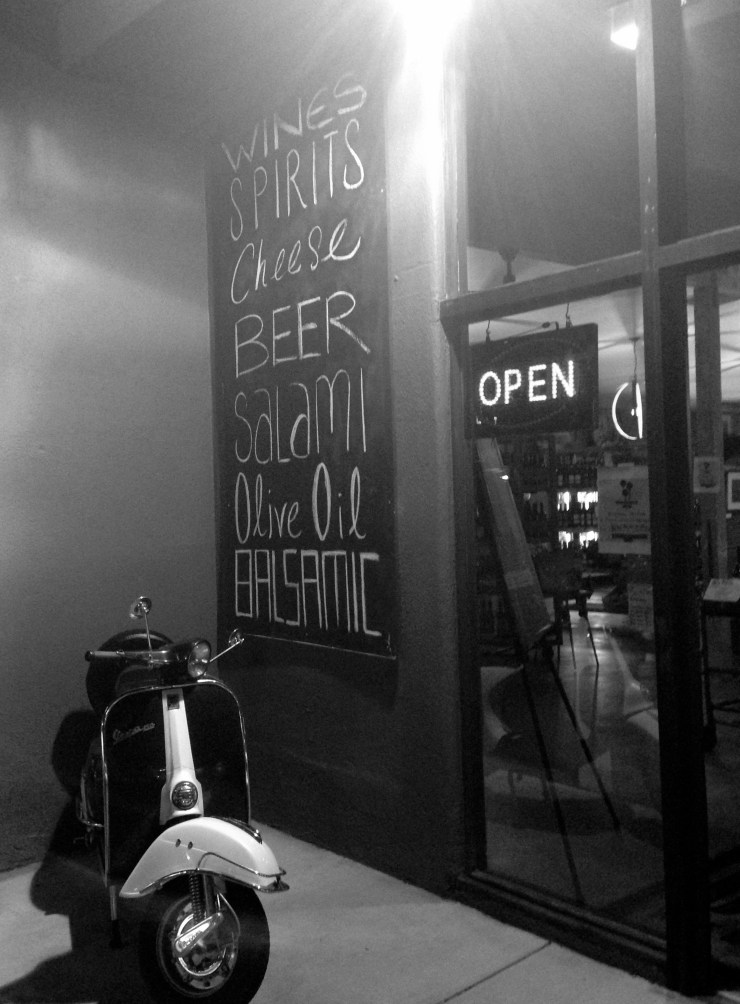 WINES
SPIRITS
Cheese
BEER
SALAMI
Olive Oil
BALSAMIC
OPEN
Vespa